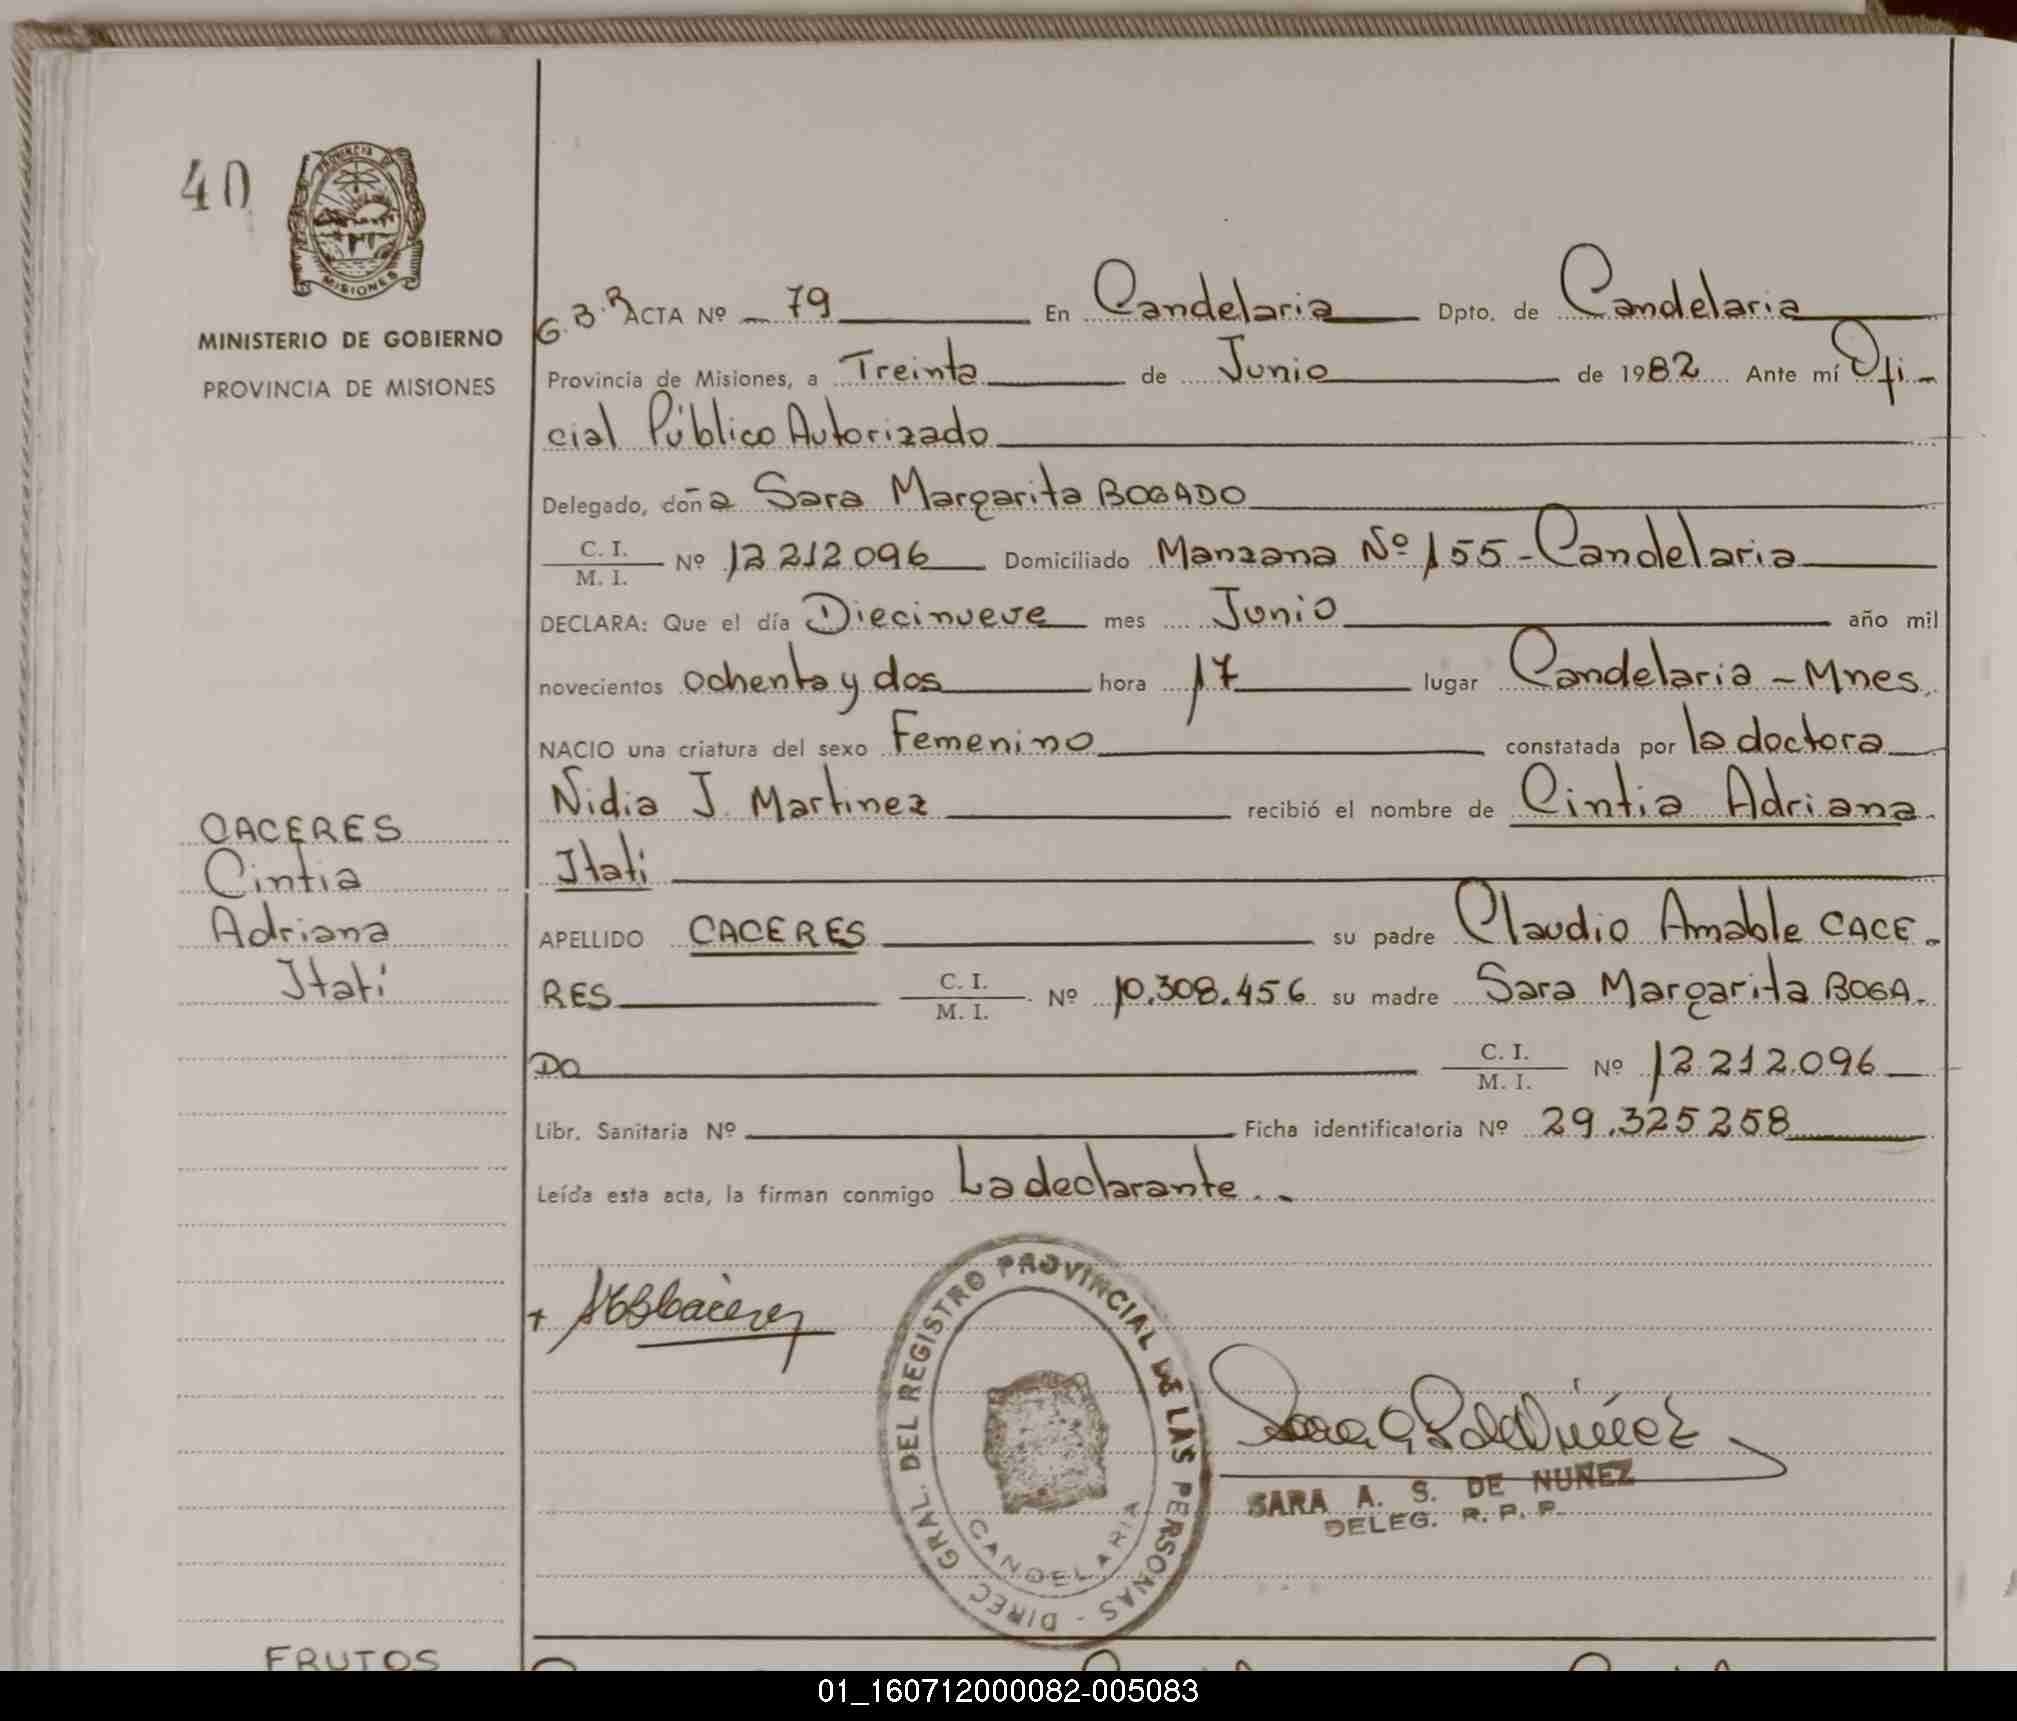 40
PROVINCIA DE
MISIONES
MINISTERIO DE GOBIERNO
PROVINCIA DE MISIONES
G.B.R ACTA Nº 79 En Candelaria Dpto. de Candelaria
Provincia de Misiones, a Treinta de Junio de 1982 Ante mí Ofi-
cial Público Autorizado
Delegado, doña Sara Margarita BOGADO
C. I.
M. I. Nº 12 212 096 Domiciliado Manzana Nº 155 - Candelaria
DECLARA: Que el día Diecinueve mes Junio año mil
novecientos ochenta y dos hora 17 lugar Candelaria - Mnes.
NACIO una criatura del sexo Femenino constatada por la doctora
Nidia J. Martinez recibió el nombre de Cintia Adriana
Itatí
CACERES
Cintia
Adriana
Itatí
APELLIDO CACERES su padre Claudio Amable CACE-
RES C. I.
M. I. Nº 10.308.456 su madre Sara Margarita BOGA-
DO C. I.
M. I. Nº 12.212.096
Libr. Sanitaria Nº Ficha identificatoria Nº 29.325258
Leída esta acta, la firman conmigo La declarante..
DIREC GRAL. DEL REGISTRO PROVINCIAL DE LAS PERSONAS -
CANDELARIA
SARA A. S. DE NUÑEZ
DELEG. R. P. P.
FRUTOS
01_160712000082-005083